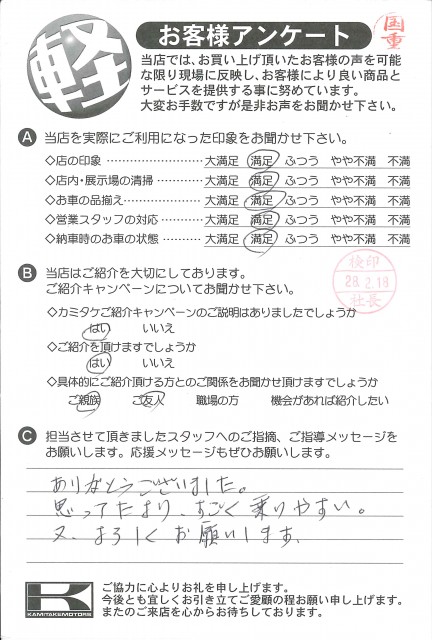 軽
お客様アンケート
国重
当店では、お買い上げ頂いたお客様の声を可能
な限り現場に反映し、お客様により良い商品と
サービスを提供する事に努めています。
大変お手数ですが是非お声をお聞かせ下さい。
A 当店を実際にご利用になった印象をお聞かせ下さい。
◇店の印象 …………………… 大満足 満足 ふつう やや不満 不満
◇店内・展示場の清掃 ………… 大満足 満足 ふつう やや不満 不満
◇お車の品揃え ……………… 大満足 満足 ふつう やや不満 不満
◇営業スタッフの対応 ………… 大満足 満足 ふつう やや不満 不満
◇納車時のお車の状態 ………… 大満足 満足 ふつう やや不満 不満
B 当店はご紹介を大切にしております。
ご紹介キャンペーンについてお聞かせ下さい。
検印
28.2.18
社長
◇カミタケご紹介キャンペーンのご説明はありましたでしょうか
はい いいえ
◇ご紹介を頂けますでしょうか
はい いいえ
◇具体的にご紹介頂ける方とのご関係をお聞かせ頂けますでしょうか
ご親族 ご友人 職場の方 機会があれば紹介したい
C 担当させて頂きましたスタッフへのご指摘、ご指導メッセージを
お願いします。応援メッセージもぜひお願いします。
ありがとうございました。
思ってたより、すごく乗りやすい。
又、よろしくお願いします、
K
KAMITAKEMOTORS
ご協力に心よりお礼を申し上げます。
今後とも宜しくお引き立てご愛顧の程お願い申し上げます。
またのご来店を心からお待ちしております。